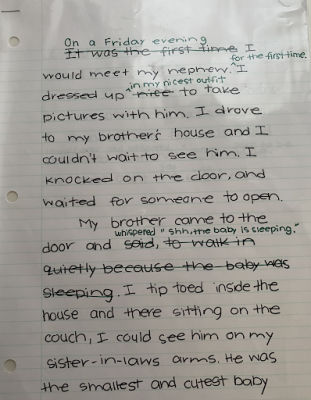 On a Friday evening
It was the first time I
for the first time.
would meet my nephew. ^I
in my nicest outfit
dressed up ^nice to take
pictures with him. I drove
to my brother's house and I
couldn't wait to see him. I
knocked on the door, and
waited for someone to open.
My brother came to the
whispered "shh, the baby is sleeping."
door and said, to walk in
quietly because the baby was
sleeping. I tip toed inside the
house and there sitting on the
couch, I could see him on my
sister-in-laws arms. He was
the smallest and cutest baby